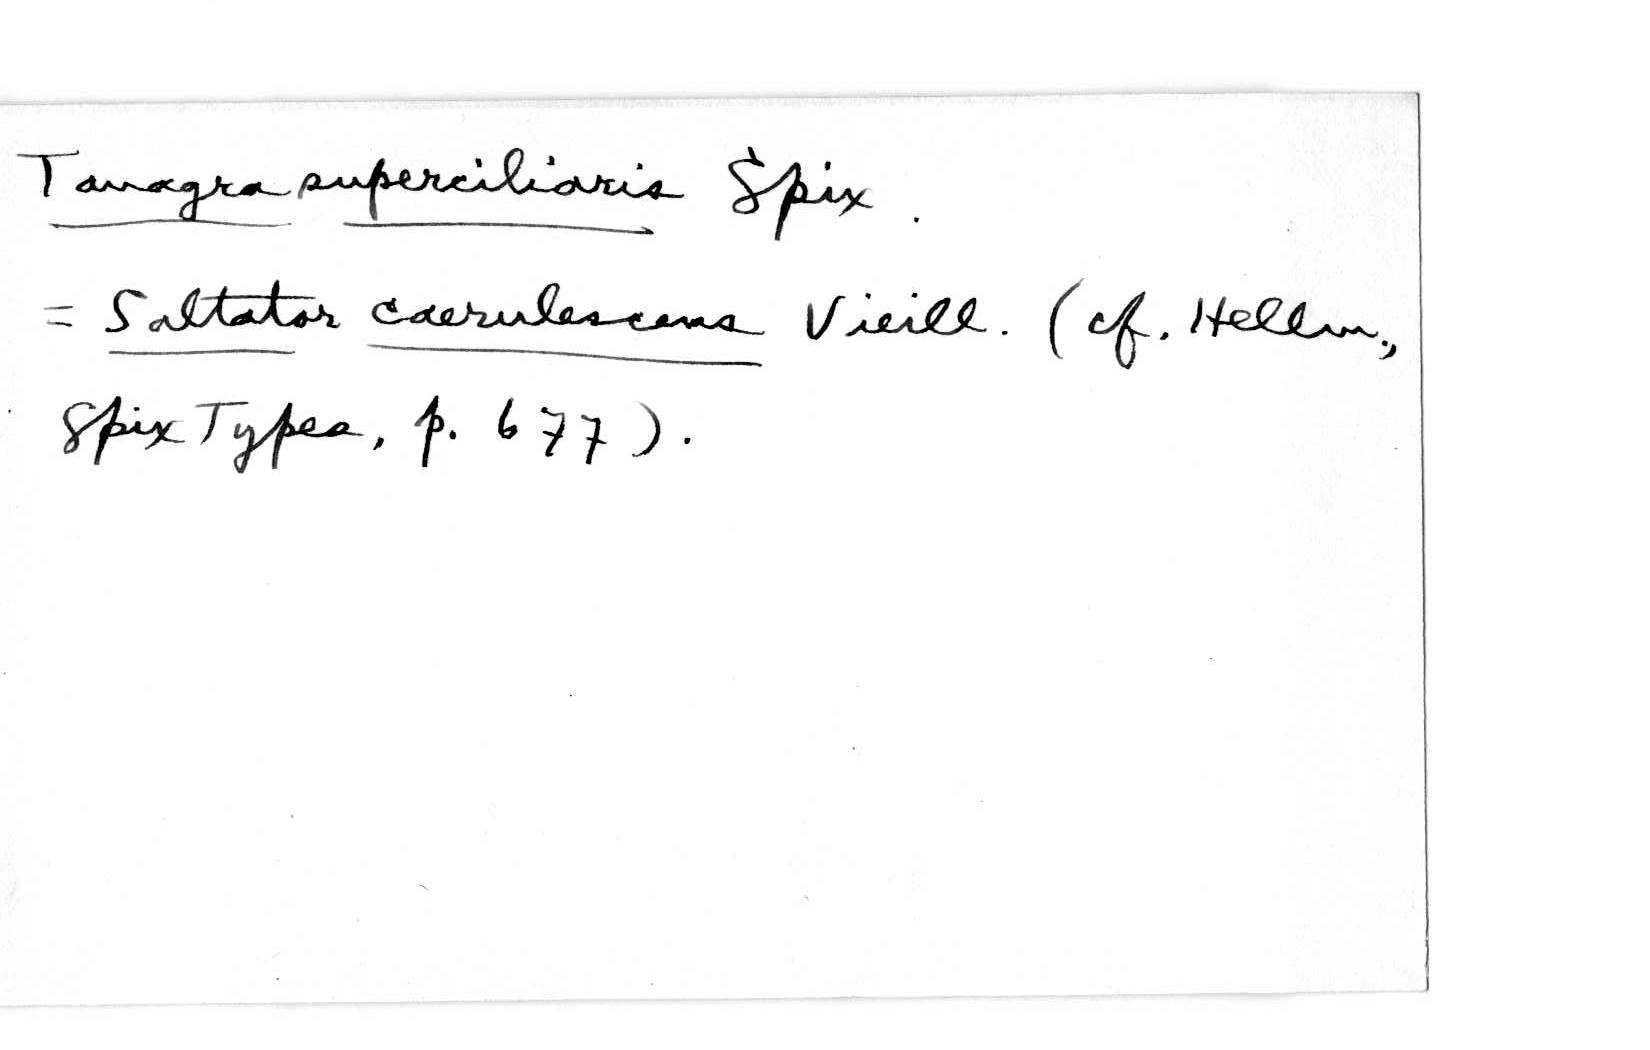 Tanagra superciliaris Spix.
= Saltator caerulescens Vieill. (cf. Hellm.,
Spix Types, p. 677).